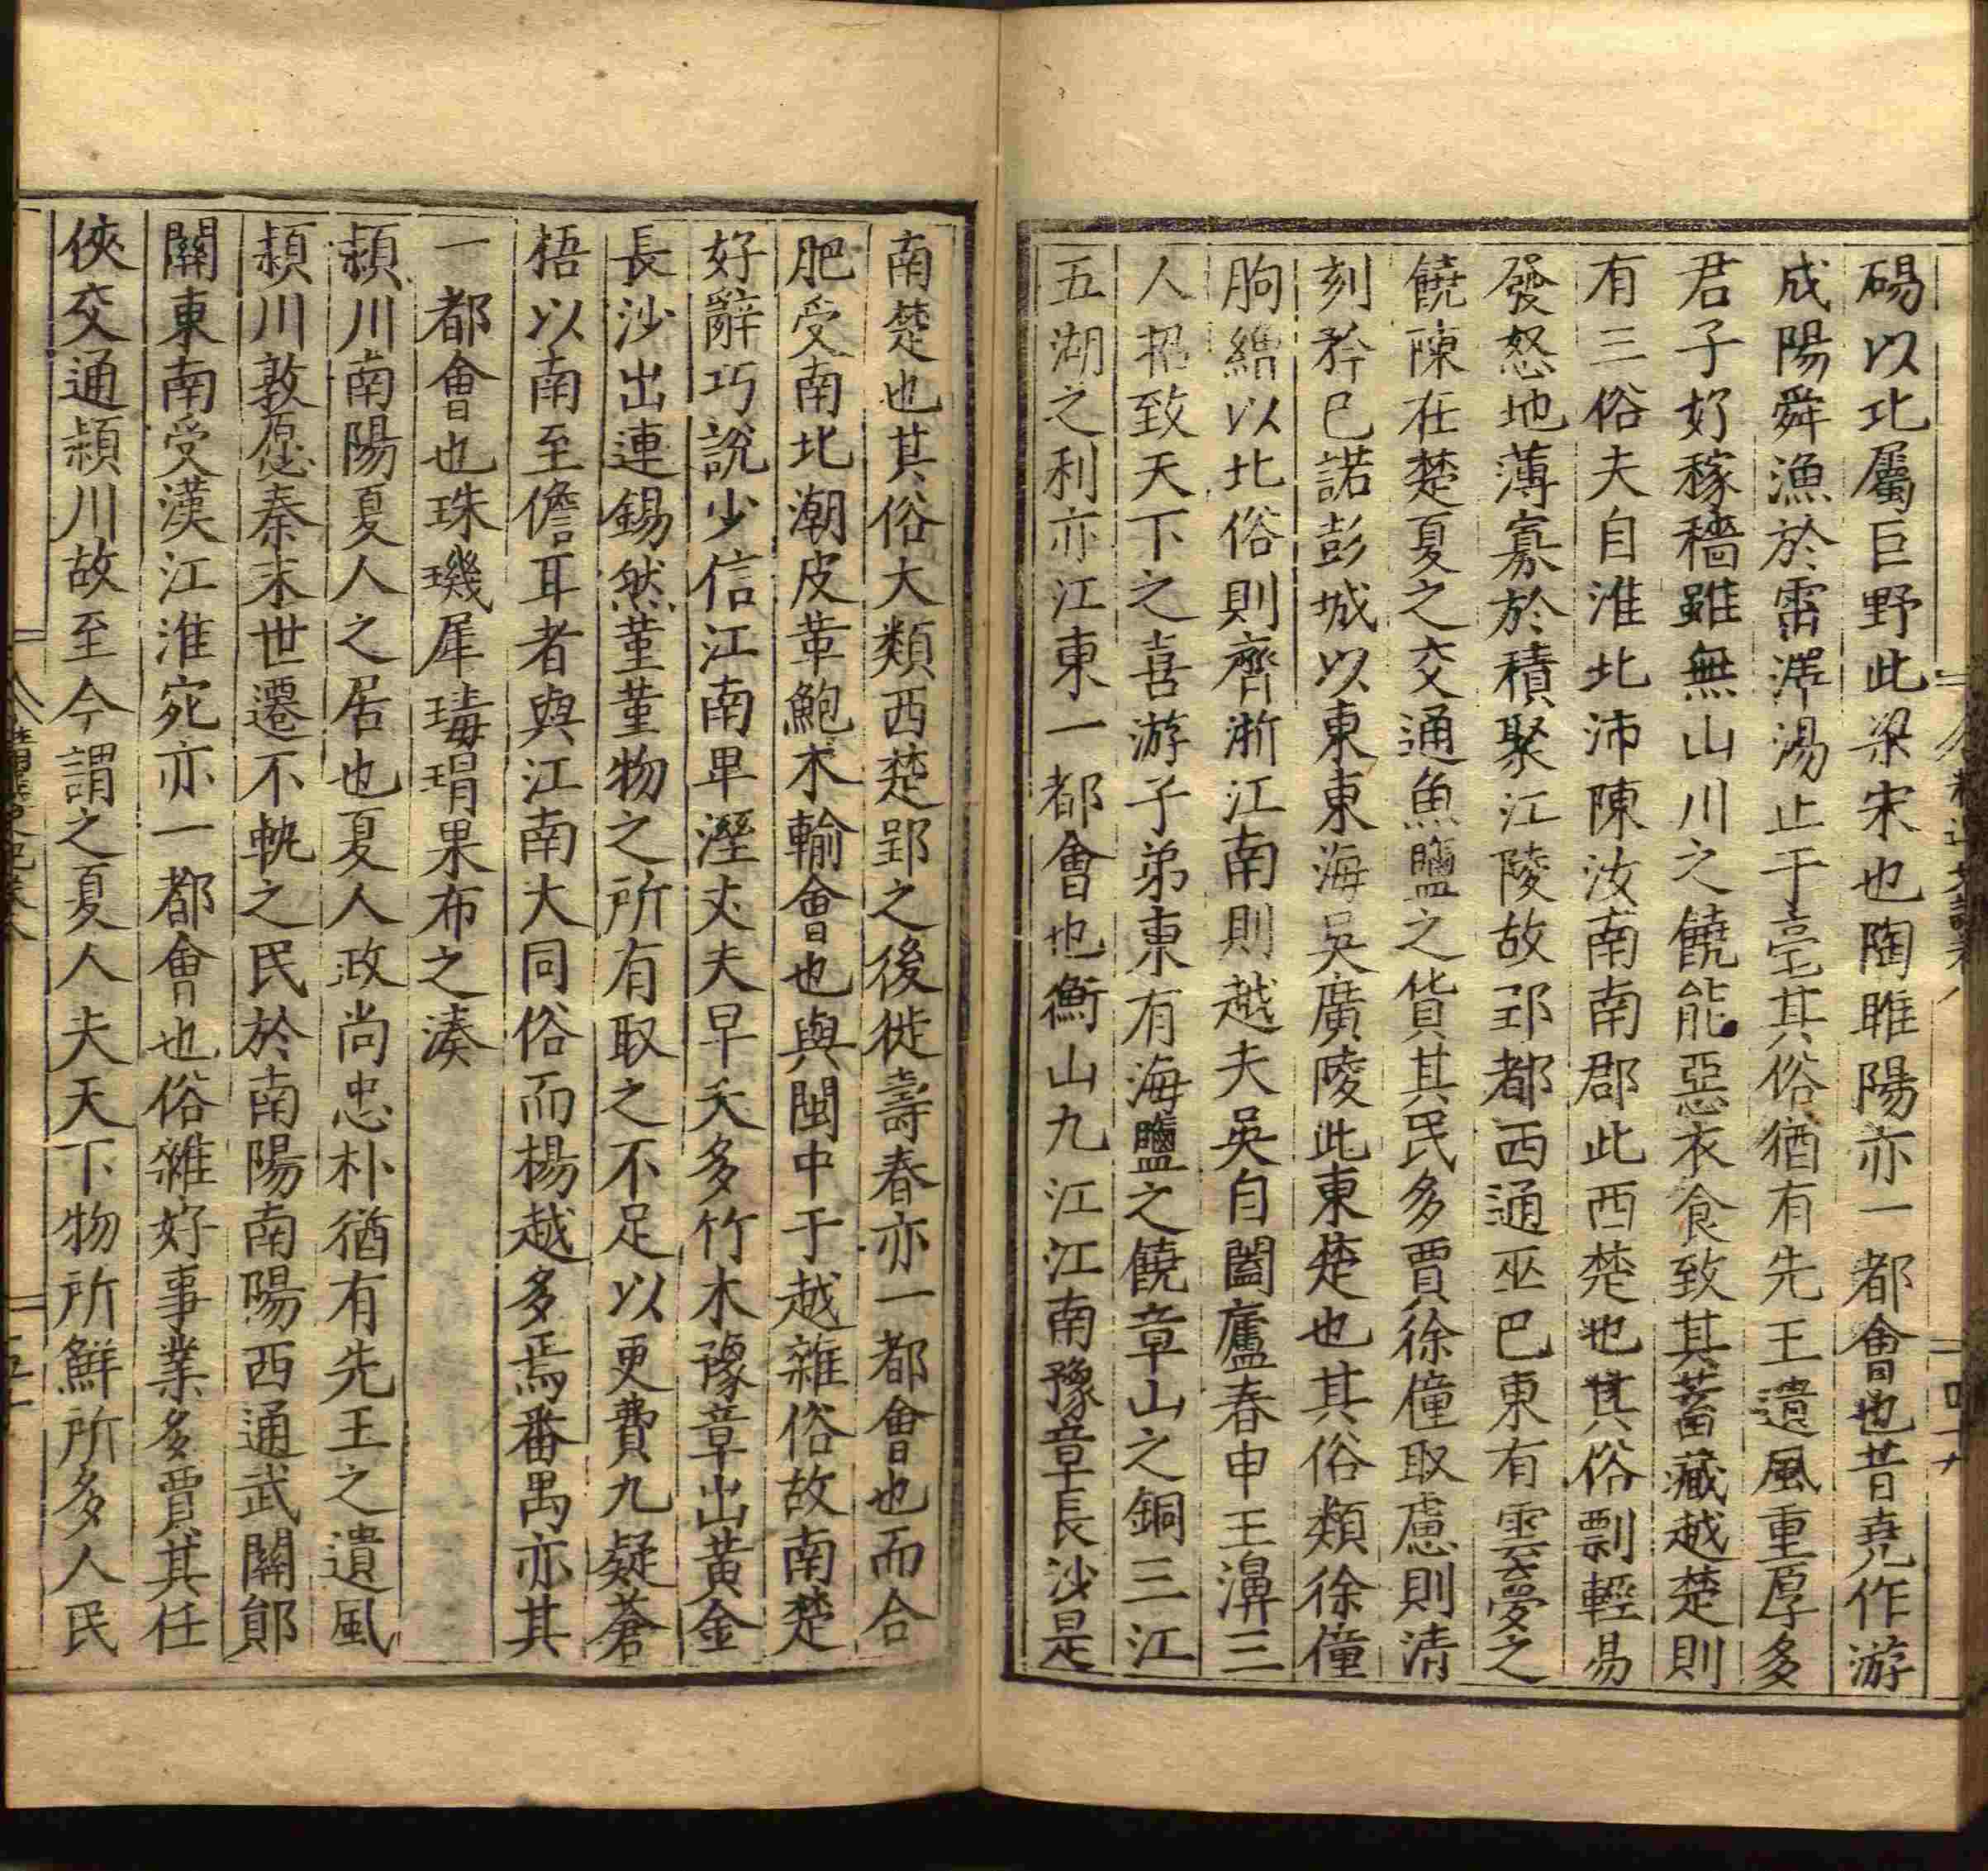 碭以北屬巨野此梁宋也陶睢陽亦一都會也昔堯作游
成陽舜漁於雷澤湯止于亳其俗猶有先王遺風重厚多
君子好稼穡雖無山川之饒能惡衣食致其蓄藏越楚則
有三俗夫自淮北沛陳汝南南郡此西楚也其俗剽輕易
發怒地薄寡於積聚江陵故郢都西通巫巴東有雲夢之
饒陳在楚夏之交通魚鹽之貨其民多賈徐僮取慮則清
刻矜已諾彭城以東東海吳廣陵此東楚也其俗類徐僮
朐繒以北俗則齊浙江南則越夫吳自闔廬春申王濞三
人招致天下之喜游子弟東有海鹽之饒章山之銅三江
五湖之利亦江東一都會也衡山九江江南豫章長沙是
南楚也其俗大類西楚郢之後徙壽春亦一都會也而合
肥受南北潮皮革鮑木輸會也與閩中于越雜俗故南楚
好辭巧說少信江南卑溼丈夫早夭多竹木豫章出黃金
長沙出連錫然堇堇物之所有取之不足以更費九疑蒼
梧以南至儋耳者與江南大同俗而楊越多焉番禺亦其
一都會也珠璣犀瑇瑁果布之湊
潁川南陽夏人之居也夏人政尚忠朴猶有先王之遺風
潁川敦愿秦末世遷不軌之民於南陽南陽西通武關鄖
關東南受漢江淮宛亦一都會也俗雜好事業多賈其任
俠交通潁川故至今謂之夏人夫天下物所鮮所多人民